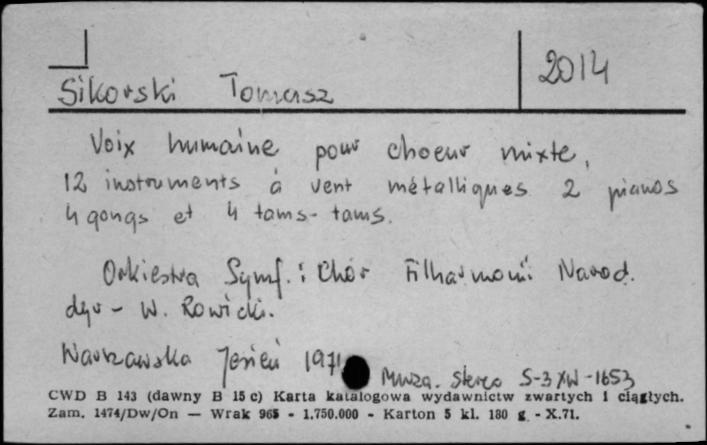 2014
Sikorski Tomasz
Voix humaine pour choeur mixte,
12 instruments à vent métalliques 2 pianos
4 gongs et 4 tams-tams.
Orkiestra Symf. i Chór Filharmonii Narod.
dyr - W. Rowicki.
Warszawska Jesień 1971 Muza. Stereo S-3 XW-1653
CWD B 143 (dawny B 15 c) Karta katalogowa wydawnictw zwartych i ciągłych.
Zam. 1474/Dw/On — Wrak 965 - 1.750.000 - Karton 5 kl. 180 g - X.71.